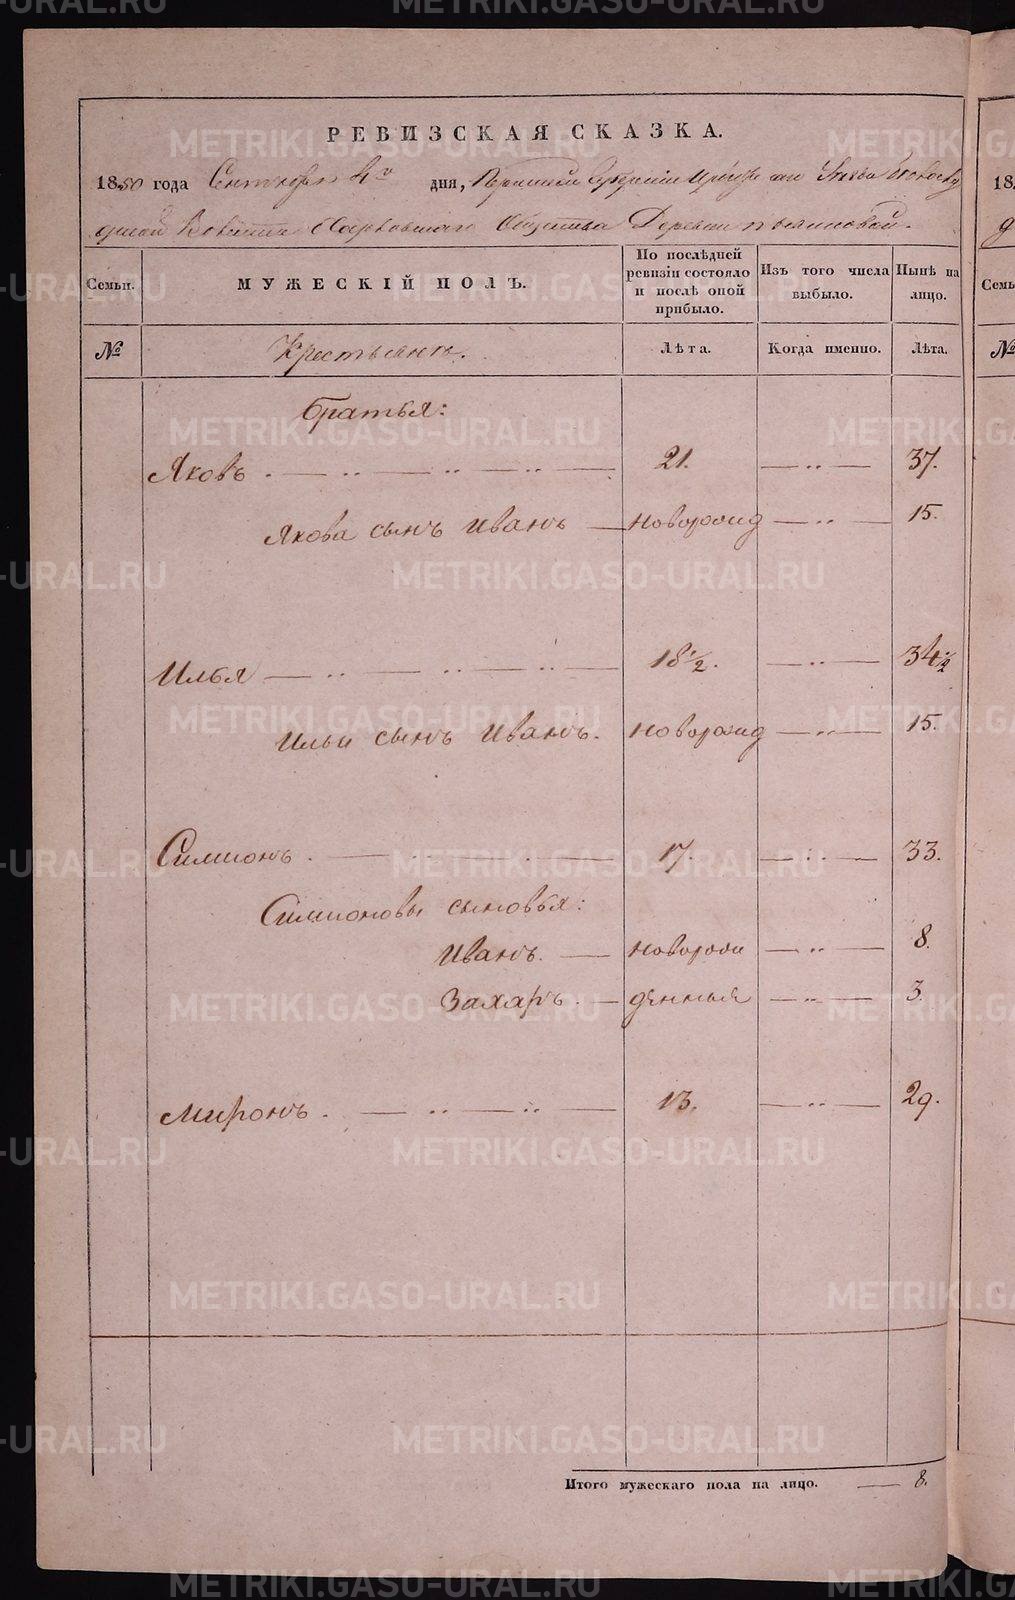 РЕВИЗСКАЯ СКАЗКА.
1850 года Сентября 4го дня, Пермской Губернии
Волости Харловскаго Общества Деревни
Семьи. МУЖЕСКІЙ ПОЛЪ. По послѣдней ревизіи состояло и послѣ оной прибыло. Изъ того числа выбыло. Нынѣ на лицо.
№ Крестьяне. Лѣта. Когда именно. Лѣта.
Братья:
Яковъ 21. 37.
Якова сынъ Иванъ новорожд 15.
Илья 18 1/2. 34 1/2
Ильи сынъ Иванъ. новорожд 15.
Симионъ. 17. 33.
Симионовы сыновья:
Иванъ. новорож 8.
Захаръ. денныя 3.
Миронъ. 13. 29.
Итого мужескаго пола на лицо. 8.
METRIKI.GASO-URAL.RU